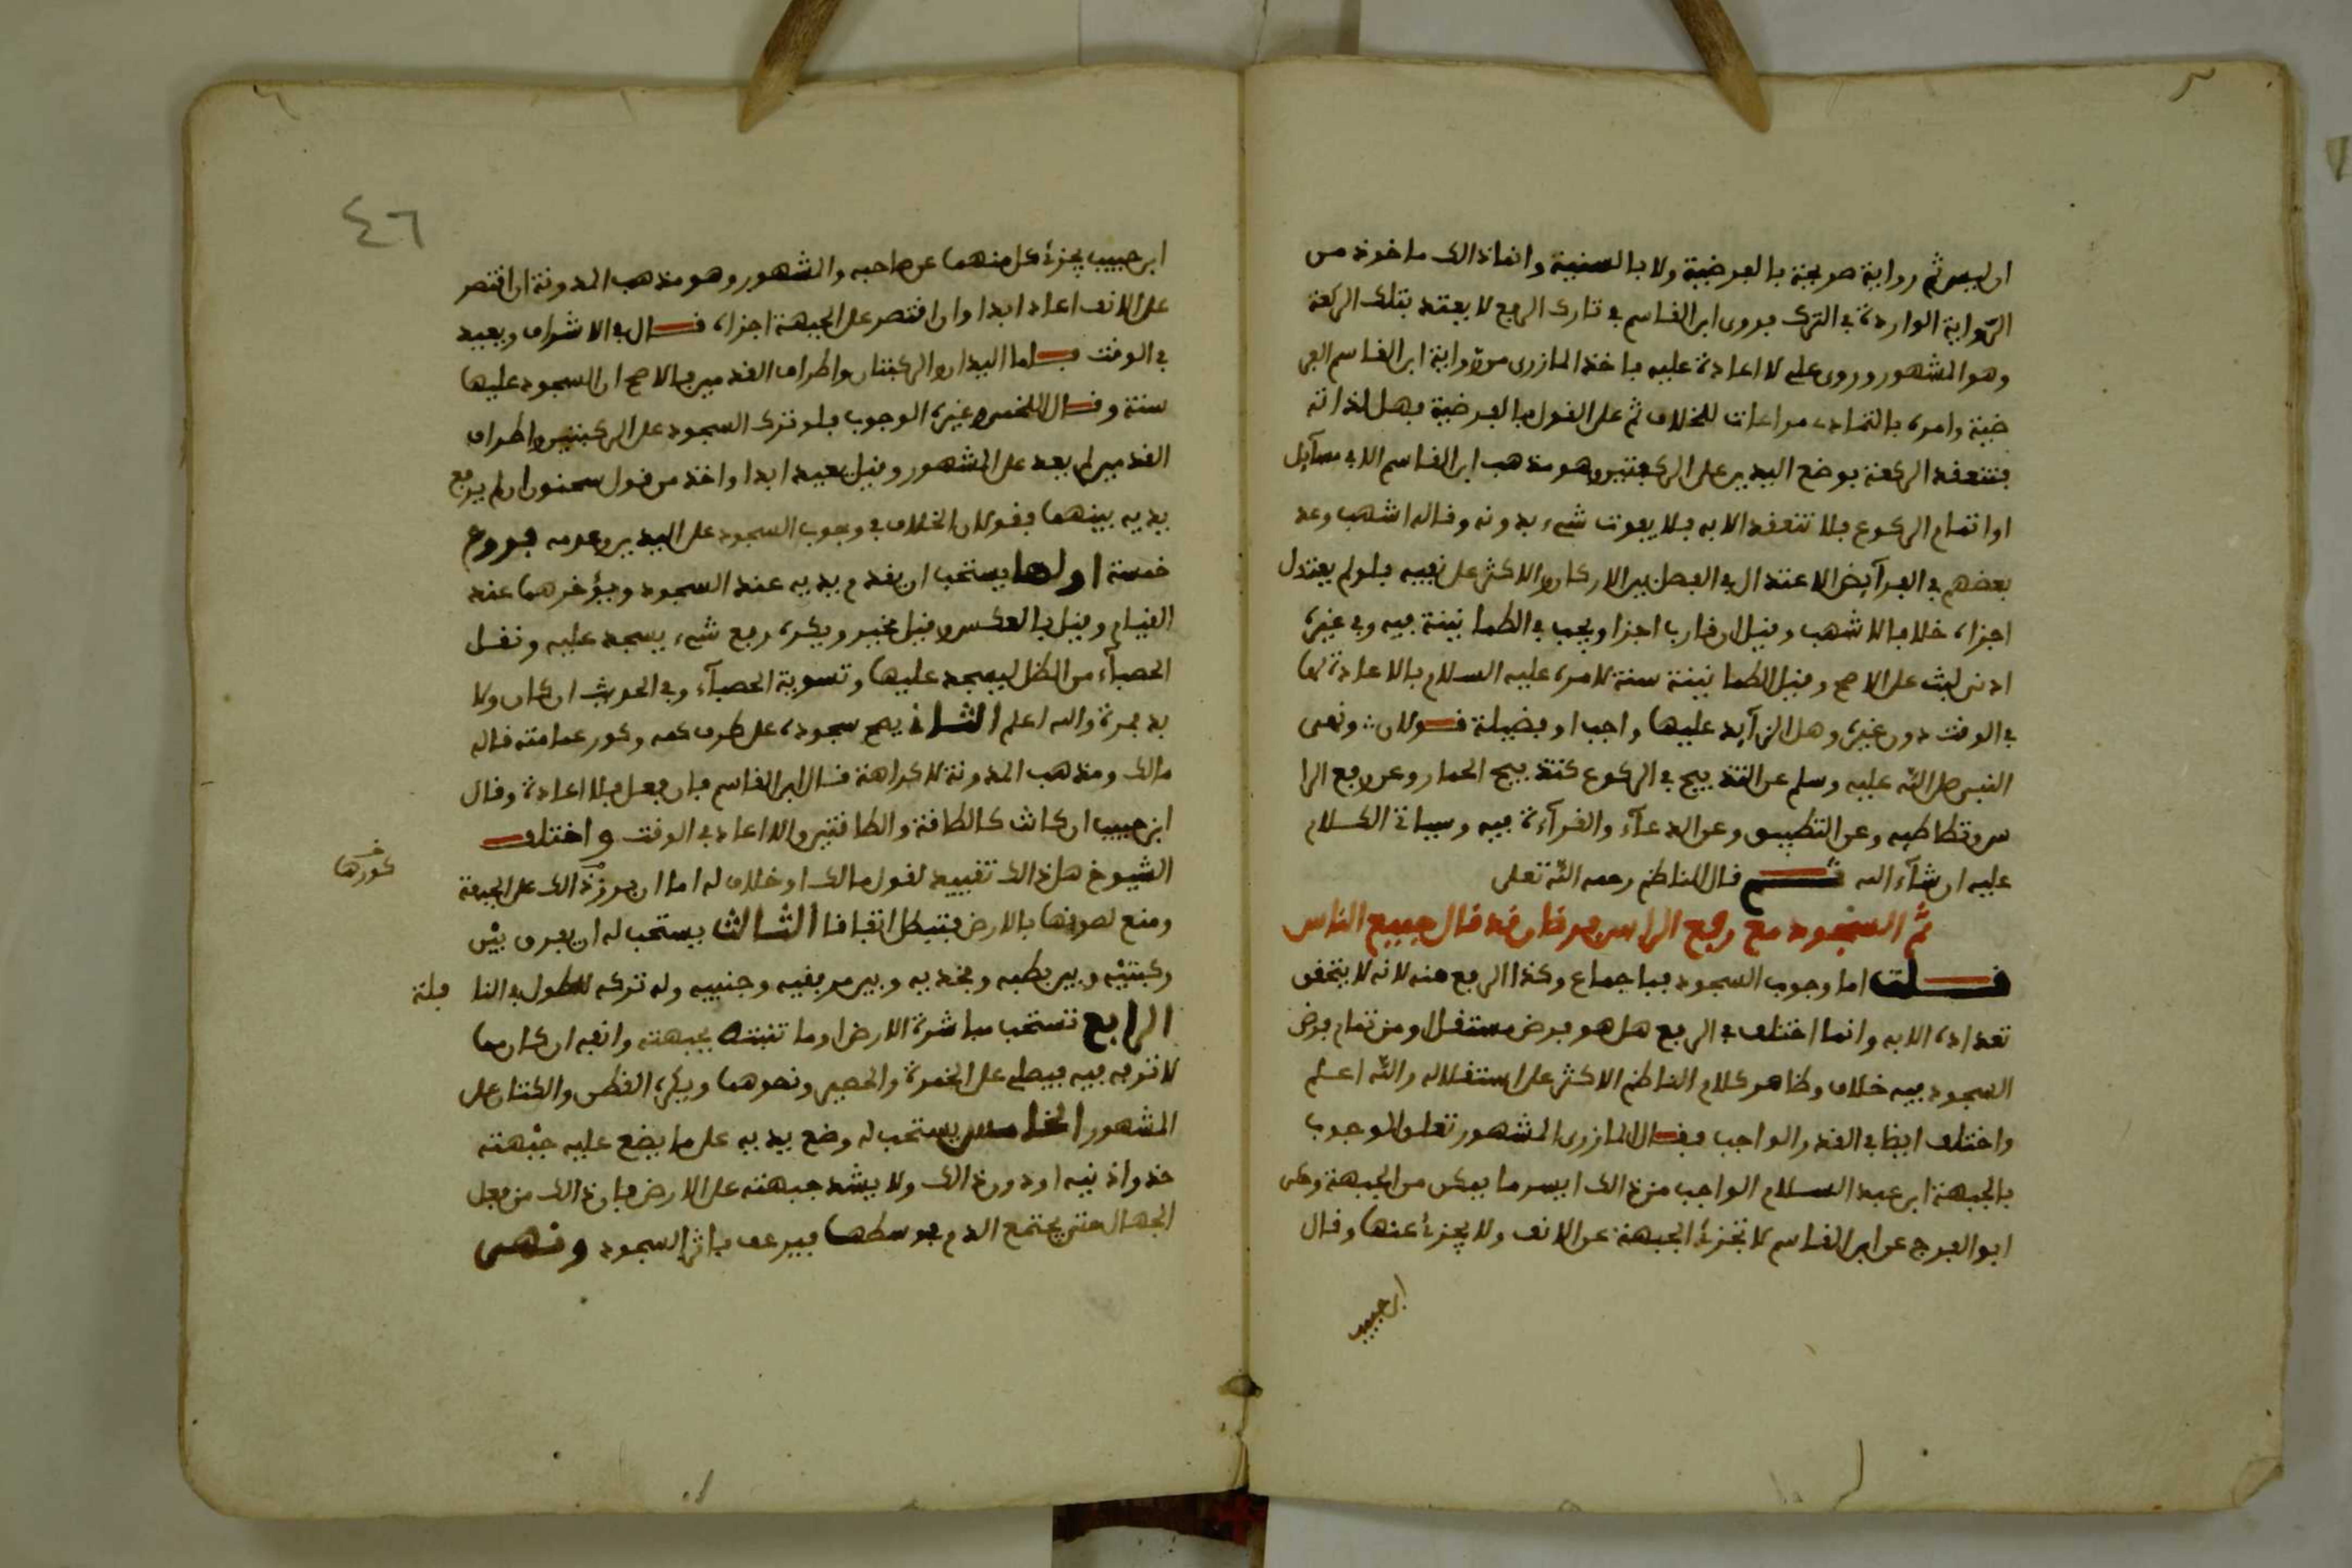 ان ليس ثم رواية صريحة بالفرضية ولا بالسنية وانما ذالك ماخوذ من
الرواية الواردة في الترك فروى ابن القاسم في تارك الرفع لا يعتد بتلك الركعة
وهو المشهور وروى علي لا اعادة عليه فاخذ المازري من رواية ابن القاسم الفر
ضية وامره بالتمادى مراعات للخلاف ثم على القول بالفرضية فهل لذاته
فتنعقد الركعة بوضع اليدين على الركبتين وهو مذهب ابن القاسم الا في مسآيل
او اتمام الركوع فلا تنعقد الا به فلا يفوت شيء بدونه وقاله اشهب وعد
بعضهم في الفرآيض الاعتدال في الفصل بين الاركان والاكثر على نفيه فلو لم يعتدل
اجزاه خلافا لاشهب وقيل ان قارب اجزا ويجب في الطمانينة فيه وفي غيره
ادنى لبث على الاصح وقيل الطمانينة سنة لامره عليه السلام بالاعادة لها
في الوقت دون غيره وهل الزآيد عليها واجب او فضيلة قولان ونهى
النبي صلى الله عليه وسلم عن التذبيح في الركوع كتذبيح الحمار وعن رفع الرا
س وتطاطيه وعن التطبيق وعن الدعآء والقرآءة فيه وسياتي الكلام
عليه ان شآء الله قال الناظم رحمه الله تعلى
ثم السجود مع رفع الراس فرقا وقد قال جميع الناس
قلت اما وجوب السجود فباجماع وكذا الرفع منه لانه لا يتحقق
تعداده الا به وانما اختلف في الرفع هل هو فرض مستقل او من تمام فرض
السجود فيه خلاف وظاهر كلام الناظم الاكثر على استقلاله والله اعلم
واختلف ايضا في القدر الواجب فقال المازري المشهور تعلق الوجوب
بالجبهة ابن عبد السلام الواجب من ذالك ايسر ما يمكن من الجبهة وحكى
ابو الفرج عن ابن القاسم لا تجزئ الجبهة عن الانف ولا يجزئ عنها وقال
ابن حبيب
٤٦
ابن حبيب يجزئ كل منهما عن صاحبه والمشهور وهو مذهب المدونة ان اقتصر
على الانف اعاد ابدا وان اقتصر على الجبهة اجزاه قال في الاشراف ويعيد
في الوقت فاما اليدان والركبتان واطراف القدمين فالاصح ان السجود عليها
سنة وقال اللخمي وغيره الوجوب فلو ترك السجود على الركبتين واطراف
القدمين لم يعد على المشهور وقيل يعيد ابدا واخذ من قول سحنون ان لم يرفع
يديه بينهما فقولان الخلاف في وجوب السجود على اليدين وعدمه فروع
خمسة اولها يستحب ان يقدم يديه عند السجود ويؤخرهما عند
القيام وقيل بالعكس وقيل مخير ويكره رفع شيء يسجد عليه ونقل
الحصبآء من الظل ليسجد عليها وتسوية الحصبآء وفي الحديث ان كان ولا
بد فمرة والله اعلم الثاني يصح سجوده على طرف كمه وكور عمامته قاله
مالك ومذهب المدونة لا كراهة قال ابن القاسم فان فعل فلا اعادة وقال
ابن حبيب ان كانت كالطاقة والطاقتين والا اعاد في الوقت واختلف
الشيوخ هل ذالك تقييد لقول مالك او خلاف له اما ان برز ذالك على الجبهة
كورها خ
ومنع لصوقها بالارض فتبطل اتفاقا الثالث يستحب له ان يفرق بين
ركبتيه وبين بطنه وفخذيه وبين مرفقيه وجنبيه وله تركه للطول في النا فلة
الرابع تستحب مباشرة الارض او ما تنبته بجبهته وانفه ان كان مما
لا ترفه فيه فيصلي على الخمرة والحصير ونحوهما ويكره القطن والكتان على
المشهور الخامس يستحب له وضع يديه على ما يضع عليه جبهته
حذو اذنيه او دون ذالك ولا يشد جبهته على الارض فان ذالك من فعل
الجهال حتى يجتمع الدم بوسطها فيرعف باثر السجود ونهى